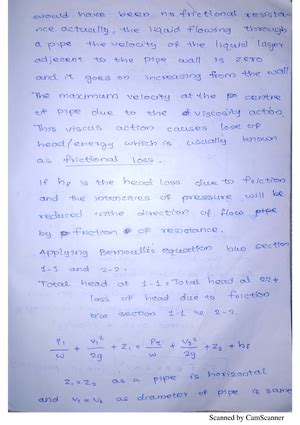 would have been no frictional resista-
nce actually, the liquid flowing through
a pipe the velocity of the liquid layer
adjezent to the pipe wall is zero
and it goes on increasing from the wall.
The maximum velocity at the centre
of pipe due to the viscosity action.
This viscus action causes lose of
head/energy which is usually known
as frictional loss.
If hf is the head loss due to friction
and the intensities of pressure will be
reduced in the direction of flow pipe
by friction of resistance.
Applying Bernoulli's equation b/w section
1-1 and 2-2.
Total head at 1-1 = Total head at 2-2 +
loss of head due to friction
b/w section 1-1 to 2-2.
P1/w + V1²/2g + Z1 = P2/w + V2²/2g + Z2 + hf
Z1 = Z2 as a pipe is horizontal
and V1 = V2 as diameter of pipe is same
Scanned by CamScanner